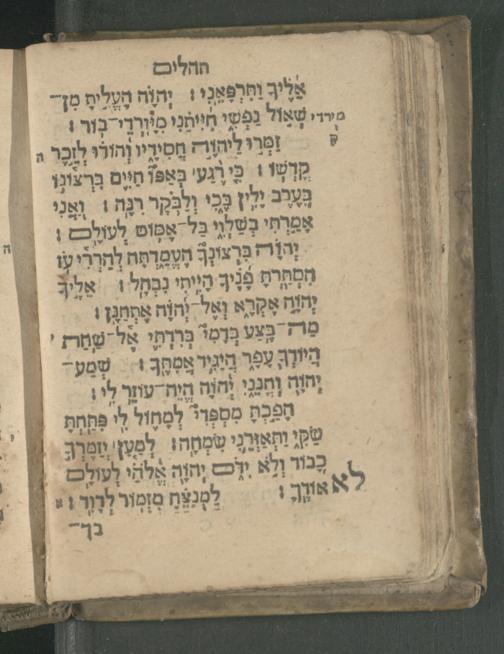 תהלים
אֵלֶיךָ וַתִּרְפָּאֵנִי׃ יְהוָה הֶעֱלִיתָ מִן־
שְׁאוֹל נַפְשִׁי חִיִּיתַנִי מִיָּורְדִי־בוֹר׃
מירדי
ק
זַמְּרוּ לַיהוָה חֲסִידָיו וְהוֹדוּ לְזֵכֶר ה
קָדְשׁוֹ׃ כִּי רֶגַע בְּאַפּוֹ חַיִּים בִּרְצוֹנוֹ
בָּעֶרֶב יָלִין בֶּכִי וְלַבֹּקֶר רִנָּה׃ וַאֲנִי
אָמַרְתִּי בְשַׁלְוִי בַּל־אֶמּוֹט לְעוֹלָם׃
יְהוָה בִּרְצוֹנְךָ הֶעֱמַדְתָּה לְהַרְרִי עֹז
הִסְתַּרְתָּ פָנֶיךָ הָיִיתִי נִבְהָל׃ אֵלֶיךָ
יְהוָה אֶקְרָא וְאֶל־יְהוָה אֶתְחַנָּן׃
מַה־בֶּצַע בְּדָמִי בְּרִדְתִּי אֶל־שָׁחַת י
הֲיוֹדְךָ עָפָר הֲיַגִּיד אֲמִתֶּךָ׃ שְׁמַע־
יְהוָה וְחָנֵּנִי יְהוָה הֱיֵה־עוֹזֵר לִי׃
הָפַכְתָּ מִסְפְּדִי לְמָחוֹל לִי פִּתַּחְתָּ
שַׂקִּי וַתְּאַזְּרֵנִי שִׂמְחָה׃ לְמַעַן יְזַמֶּרְךָ
כָבוֹד וְלֹא יִדֹּם יְהוָה אֱלֹהַי לְעוֹלָם
לא אוֹדֶךָּ׃ לַמְנַצֵּחַ מִזְמוֹר לְדָוִד׃ א
בך־